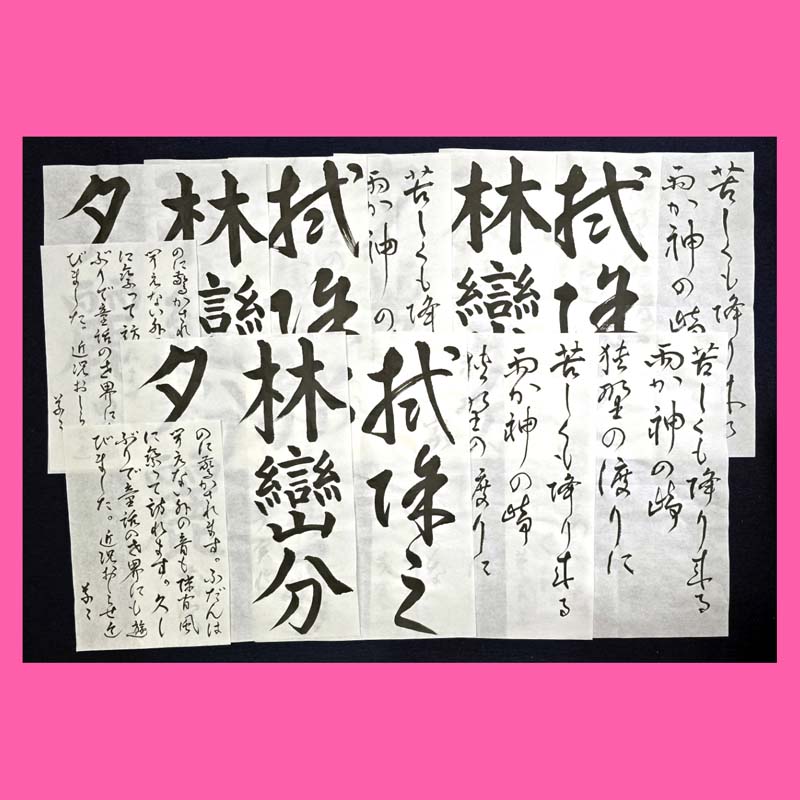 苦しくも降り来る
雨か神の崎
苦しくも降り来る
雨か神の崎
狭野の渡りに
拭
林
巒
苦しくも降
雨か神の
拭
林
巒
夕
のに驚かされ
ぶりで童話の世界に
びました。近況おしら
苦しくも降り来る
雨か神の崎
狭野の渡りに
拭
之
林
巒
分
夕
のに驚かされます。ふだんは
聞えない外の音も陰有風
に乗って訪れます。久し
ぶりで童話の世界にも遊
びました。近況おしらせ迄